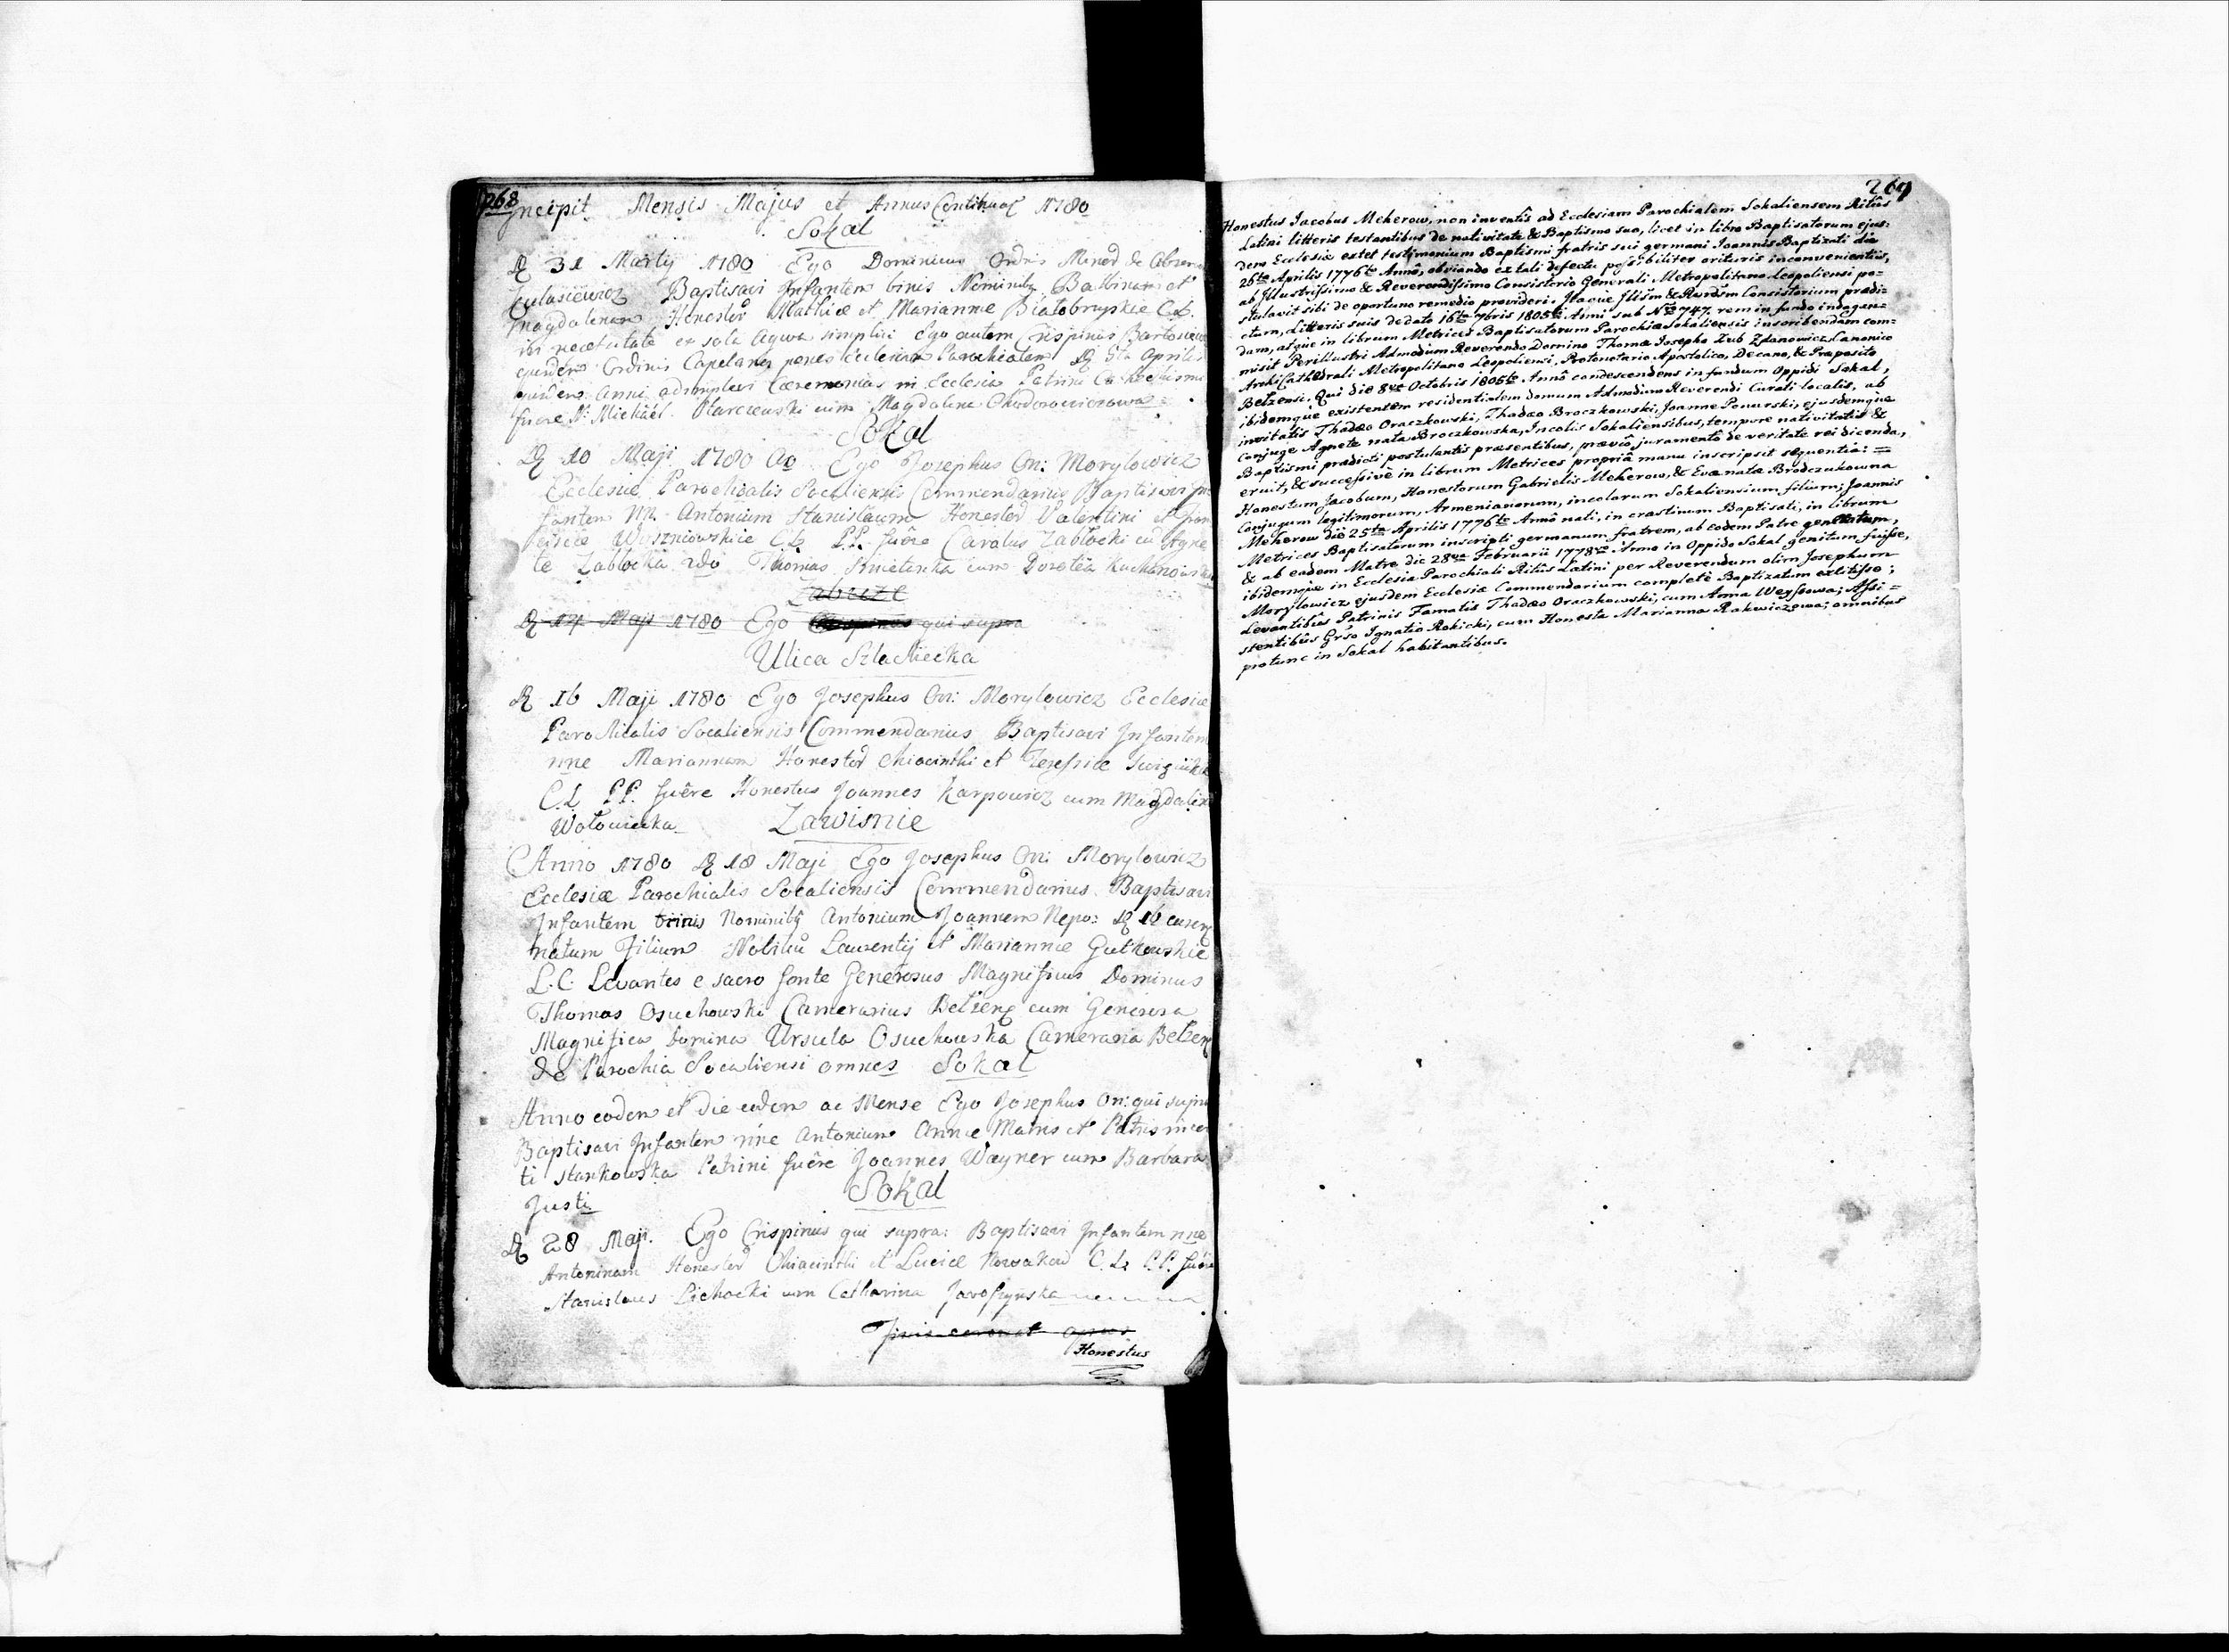 268
Incipit Mensis Majus et Annus Continuat 1780
Sokal
31 Martij 1780 Ego Dominicus Ordis Minorum de
Baptisavi Infantem binis Nominibus Balbinam et
Magdalenam Honestor Mathiæ et Mariannæ C.L.
in necessitate ex sola aqua simplici Ego autem Crispinus
ejusdem Ordinis Capelanus penes Ecclesiam Parochialem Aprilis
ejusdem anni adimplevi Cæremonias in Ecclesia Patrini
fuere Michael cum Magdalena
Sokal
10 Maji 1780 Ao Ego Josephus On: Morylowicz
Ecclesiæ Parochialis Socaliensis Commendarius Baptisavi In
fantem nn. Antonium Stanislaum Honestor Valentini et
Wiszniowskie C.L. P.P. fuêre Carolus Zablocki cu Agne
te Zablocka 2do Thomas cum Dorotea
Zabuze
14 Maji 1780 Ego Crispinus qui supra
Ulica Szlachecka
16 Maji 1780 Ego Josephus On: Morylowicz Ecclesiæ
Parochialis Socaliensis Commendarius Baptisavi Infantem
nne Mariannam Honestor Chiacinthi et Teressiæ
C.L. P.P. fuêre Honestus Joannes Karpowicz cum Magdalena
Zawisnie
Anno 1780 18 Maji Ego Josephus On: Morylowicz
Ecclesiæ Parochialis Socaliensis Commendarius Baptisavi
Infantem binis Nominibq Antonium Joannem Nepo: 16
natum Filium Laurentij et Mariannæ Gutkowskie
L.C. Levantes e sacro fonte Generosus Magnificus Dominus
Thomas Osuchowski Camerarius Belzen cum Generosa
Magnifica Domina Ursula Osuchowska Cameraria Belzen
de Parochia Socaliensi omnes Sokal
Anno eodem et Die eodem ac Mense Ego Josephus On: qui supra
Baptisavi Infantem nne Antonium Annæ Matris et Patris incer
ti Stankowska Patrini fuêre Joannes Wayner cum Barbara
Justi
Sokal
28 Maji. Ego Crispinus qui supra: Baptisavi Infantem nne
Antoninam Honestor Chiacinthi et Luciæ C.L. P.P. fuêre
Stanislaus Lichocki cum Catharina
Finis coronat opus
Honestus
269
Honestus Jacobus Meherow, non inventis ad Ecclesiam Parochialem Sokaliensem Ritûs
Latini litteris testantibus de nativitate & Baptismo suo, licet in libro Baptisatorum ejus:
dem Ecclesiæ extet testimonium Baptismi fratris sui germani Joannis Baptizati die
26ta Aprilis 1776to Annô, obviando ex tali defectu possibiliter orituris inconvenientiis,
ab Illustrissimo & Reverendissimo Consistorio Generali Metropolitano Leopoliensi po=
stulavit sibi de oportuno remedio provideri. Itaque Illsm & Rssm Consistorium prædi=
ctum, Litteris suis de dato 16ta 7bris 1805ti Anni sub Nro 747. rem in fundo indagan=
dam, atque in librum Metrices Baptisatorum Parochiæ Sokaliensis inscribendam com=
misit Perillustri Admodum Reverendo Domino Thomæ Josepho Zub Zdanowicz Canonico
ArchiCathedrali Metropolitano Leopoliensi, Protonotario Apostolico, Decano, & Præposito
Belzensi. Qui die 8va Octobris 1805to Annô condescendens in fundum Oppidi Sokal,
ibidemque existentem residentialem domum Admodum Reverendi Curati localis, ab
invitatis Thadæo Oraczkowski, Thadæo Broczkowski, Joanne Ponurski, ejusdemque
conjuge Agnete nata Broczkowska, Incolis Sokaliensibus, tempore nativitatis &
Baptismi prædicti postulantis præsentibus, præviô juramentô de veritate rei dicenda,
eruit, & successivè in librum Metrices propriâ manu inscripsit sequentia: =
Honestum Jacobum, Honestorum Gabrielis Meherow, & Evæ natæ Brodczukowna
Conjugum legitimorum, Armenianorum, incolarum Sokaliensium filium; Joannis
Meherow die 25ta Aprilis 1776to Annô nati, in crastinum Baptisati, in librum
Metrices Baptisatorum inscripti germanum fratrem, ab eodem Patre genitum,
& ab eadem Matre die 28va Februarii 1778vo Anno in Oppido Sokal genitum fuisse,
ibidemque in Ecclesia Parochiali Ritûs Latini per Reverendum olim Josephum
Morylowicz ejusdem Ecclesiæ Commendarium completè Baptizatum extitisse;
Levantibus Patrinis Famatis Thadæo Oraczkowski, cum Anna Weyssowa; Assi=
stentibus Grso Ignatio Rokicki, cum Honesta Marianna Rakewiczowa; omnibus
protunc in Sokal habitantibus.